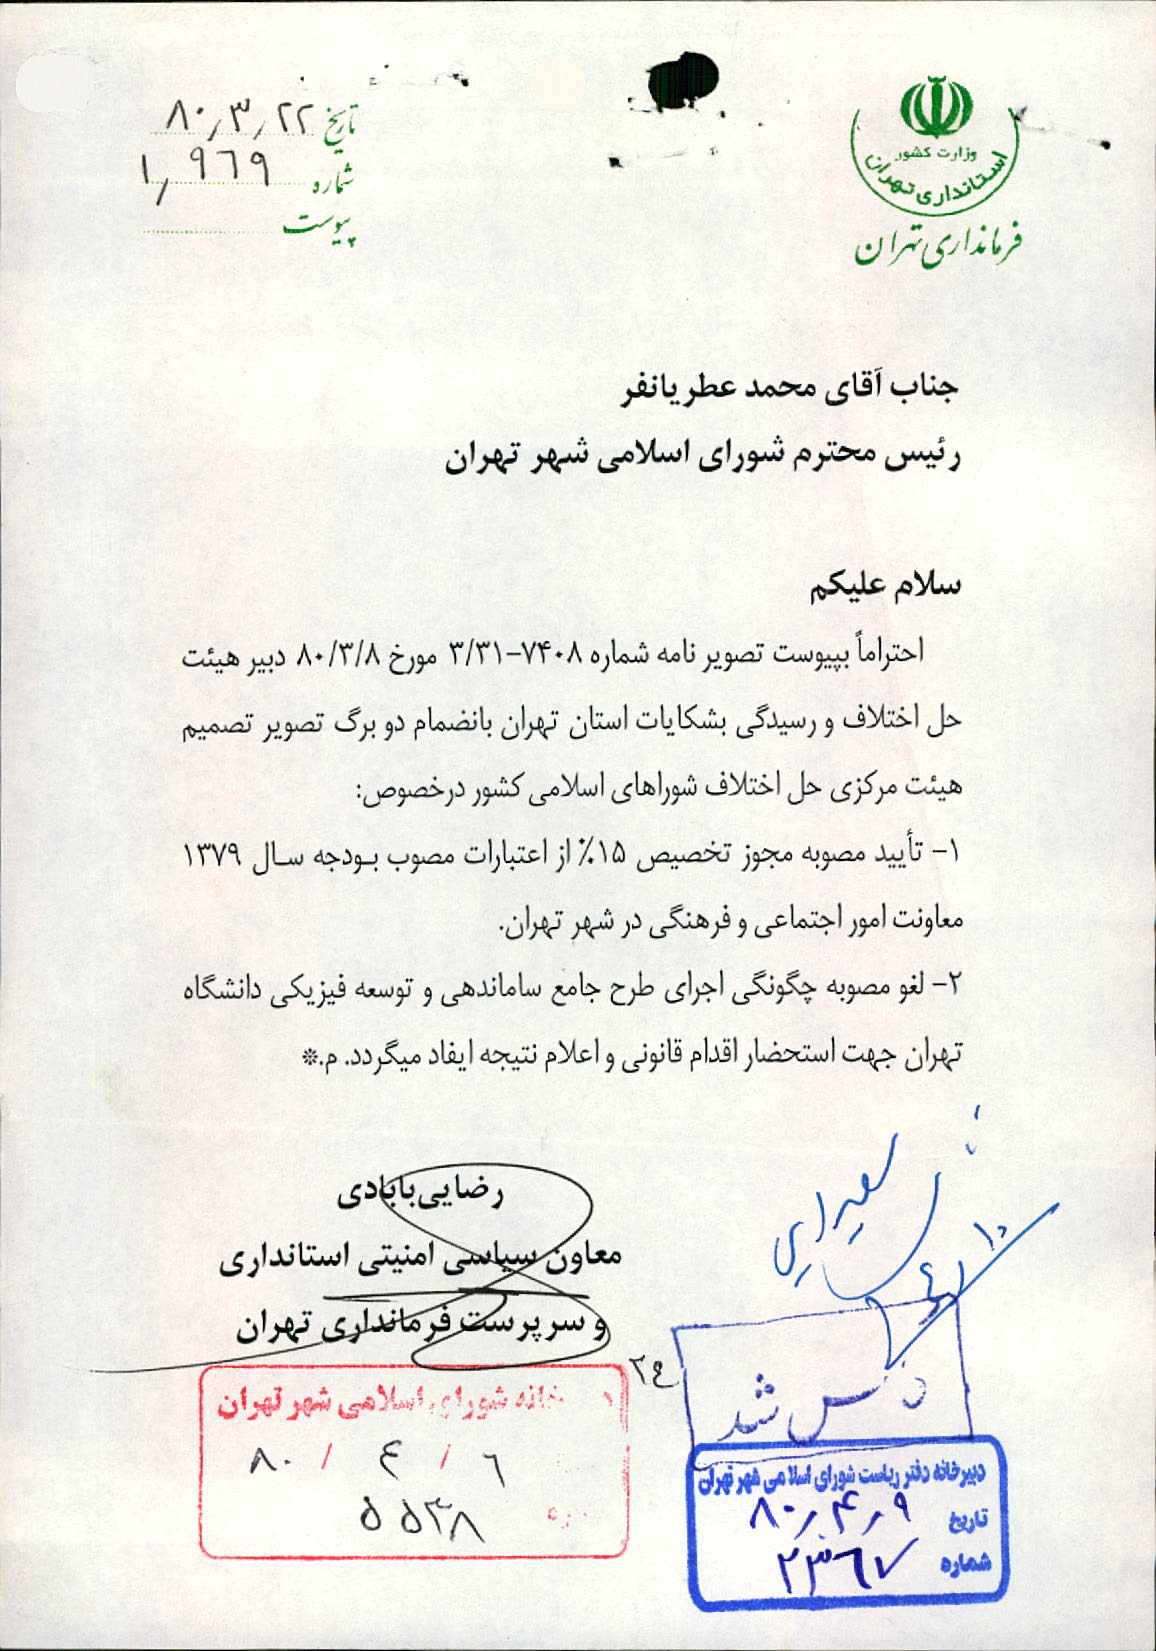 وزارت کشور
استانداری تهران
فرمانداری تهران
تاریخ ۸۰٫۳٫۲۲
شماره ۱٫۹۶۹
پیوست
جناب آقای محمد عطریانفر
رئیس محترم شورای اسلامی شهر تهران
سلام علیکم
احتراماً بپیوست تصویر نامه شماره ۷۴۰۸-۳/۳۱ مورخ ۸۰/۳/۸ دبیر هیئت
حل اختلاف و رسیدگی بشکایات استان تهران بانضمام دو برگ تصویر تصمیم
هیئت مرکزی حل اختلاف شوراهای اسلامی کشور درخصوص:
۱- تأیید مصوبه مجوز تخصیص ۱۵٪ از اعتبارات مصوب بودجه سال ۱۳۷۹
معاونت امور اجتماعی و فرهنگی در شهر تهران.
۲- لغو مصوبه چگونگی اجرای طرح جامع ساماندهی و توسعه فیزیکی دانشگاه
تهران جهت استحضار اقدام قانونی و اعلام نتیجه ایفاد میگردد. م.*
رضایی‌بابادی
معاون سیاسی امنیتی استانداری
و سرپرست فرمانداری تهران
۲۴
خانه شورای اسلامی شهر تهران
۸۰ / ۴ / ۶
۵۵۳۸
شد
دبیرخانه دفتر ریاست شورای اسلامی شهر تهران
تاریخ ۸۰٫۴٫۹
شماره ۲۳۶۷